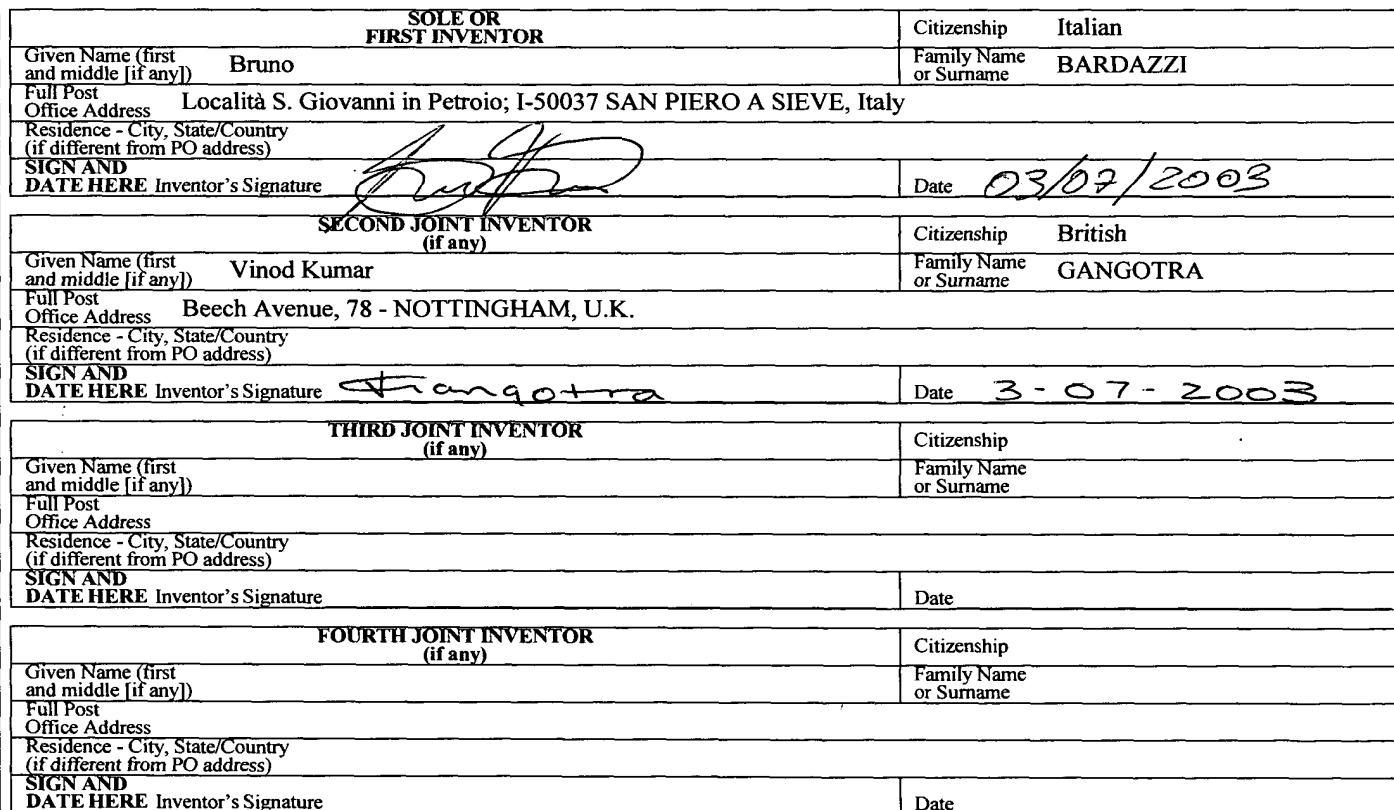 SOLE OR
FIRST INVENTOR
Citizenship Italian
Given Name (first
and middle [if any]) Bruno
Family Name
or Surname BARDAZZI
Full Post
Office Address Località S. Giovanni in Petroio; I-50037 SAN PIERO A SIEVE, Italy
Residence - City, State/Country
(if different from PO address)
SIGN AND
DATE HERE Inventor's Signature
Date 03/07/2003
SECOND JOINT INVENTOR
(if any)
Citizenship British
Given Name (first
and middle [if any]) Vinod Kumar
Family Name
or Surname GANGOTRA
Full Post
Office Address Beech Avenue, 78 - NOTTINGHAM, U.K.
Residence - City, State/Country
(if different from PO address)
SIGN AND
DATE HERE Inventor's Signature Gangotra
Date 3-07-2003
THIRD JOINT INVENTOR
(if any)
Citizenship
Given Name (first
and middle [if any])
Family Name
or Surname
Full Post
Office Address
Residence - City, State/Country
(if different from PO address)
SIGN AND
DATE HERE Inventor's Signature
Date
FOURTH JOINT INVENTOR
(if any)
Citizenship
Given Name (first
and middle [if any])
Family Name
or Surname
Full Post
Office Address
Residence - City, State/Country
(if different from PO address)
SIGN AND
DATE HERE Inventor's Signature
Date